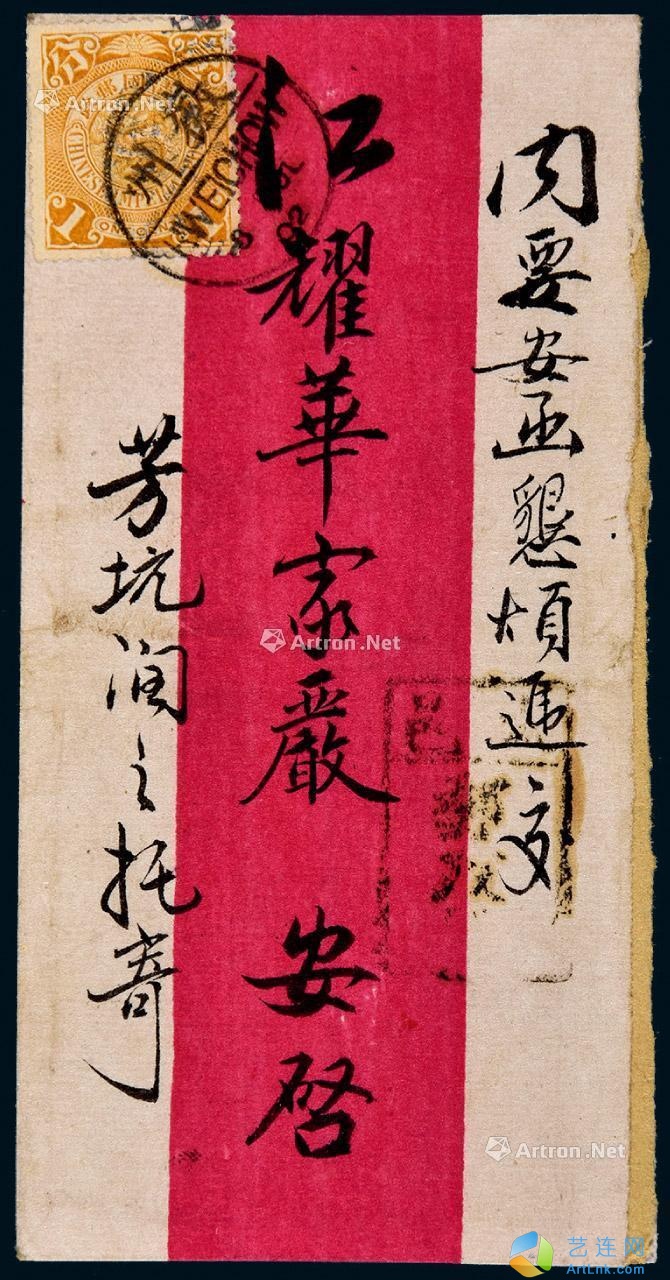 内要安函懇煩遞交
江耀華家嚴 安啓
芳坑润之托寄
分
CHINESE IMPERIAL POST
1
徽州
HWEICHOW
Artron.Net
Artron.Net
Artron.Net
Artron.Net
艺连网
ArtLnk.com